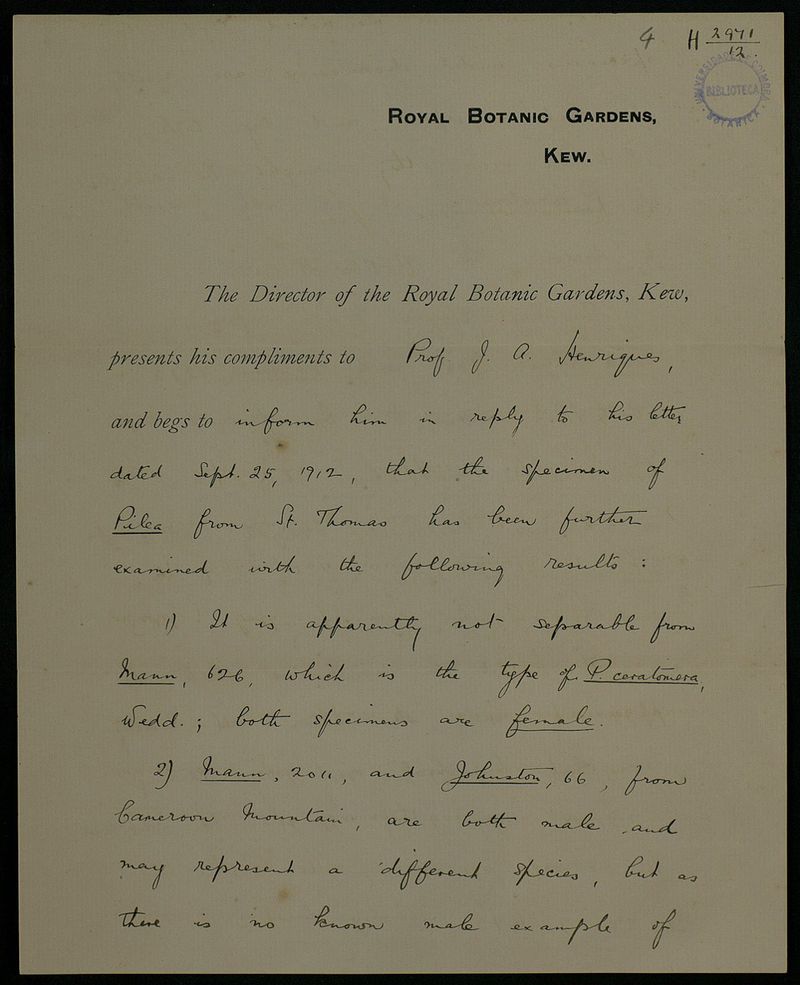 4 H 2971
12.
UNIVERSIDADE DE COIMBRA
BIBLIOTECA
BOTANICA
ROYAL BOTANIC GARDENS,
KEW.
The Director of the Royal Botanic Gardens, Kew,
presents his compliments to Prof. J. A. Henriques,
and begs to inform him in reply to his letter
dated Sept. 25, 1912, that the specimen of
Pilea from St. Thomas has been further
examined with the following results:
1) It is apparently not separable from
Mann, 626, which is the type of P. ceratomera,
Wedd.; both specimens are female.
2) Mann, 2011, and Johnston, 66, from
Cameroon Mountain, are both male and
may represent a different species, but as
there is no known male example of